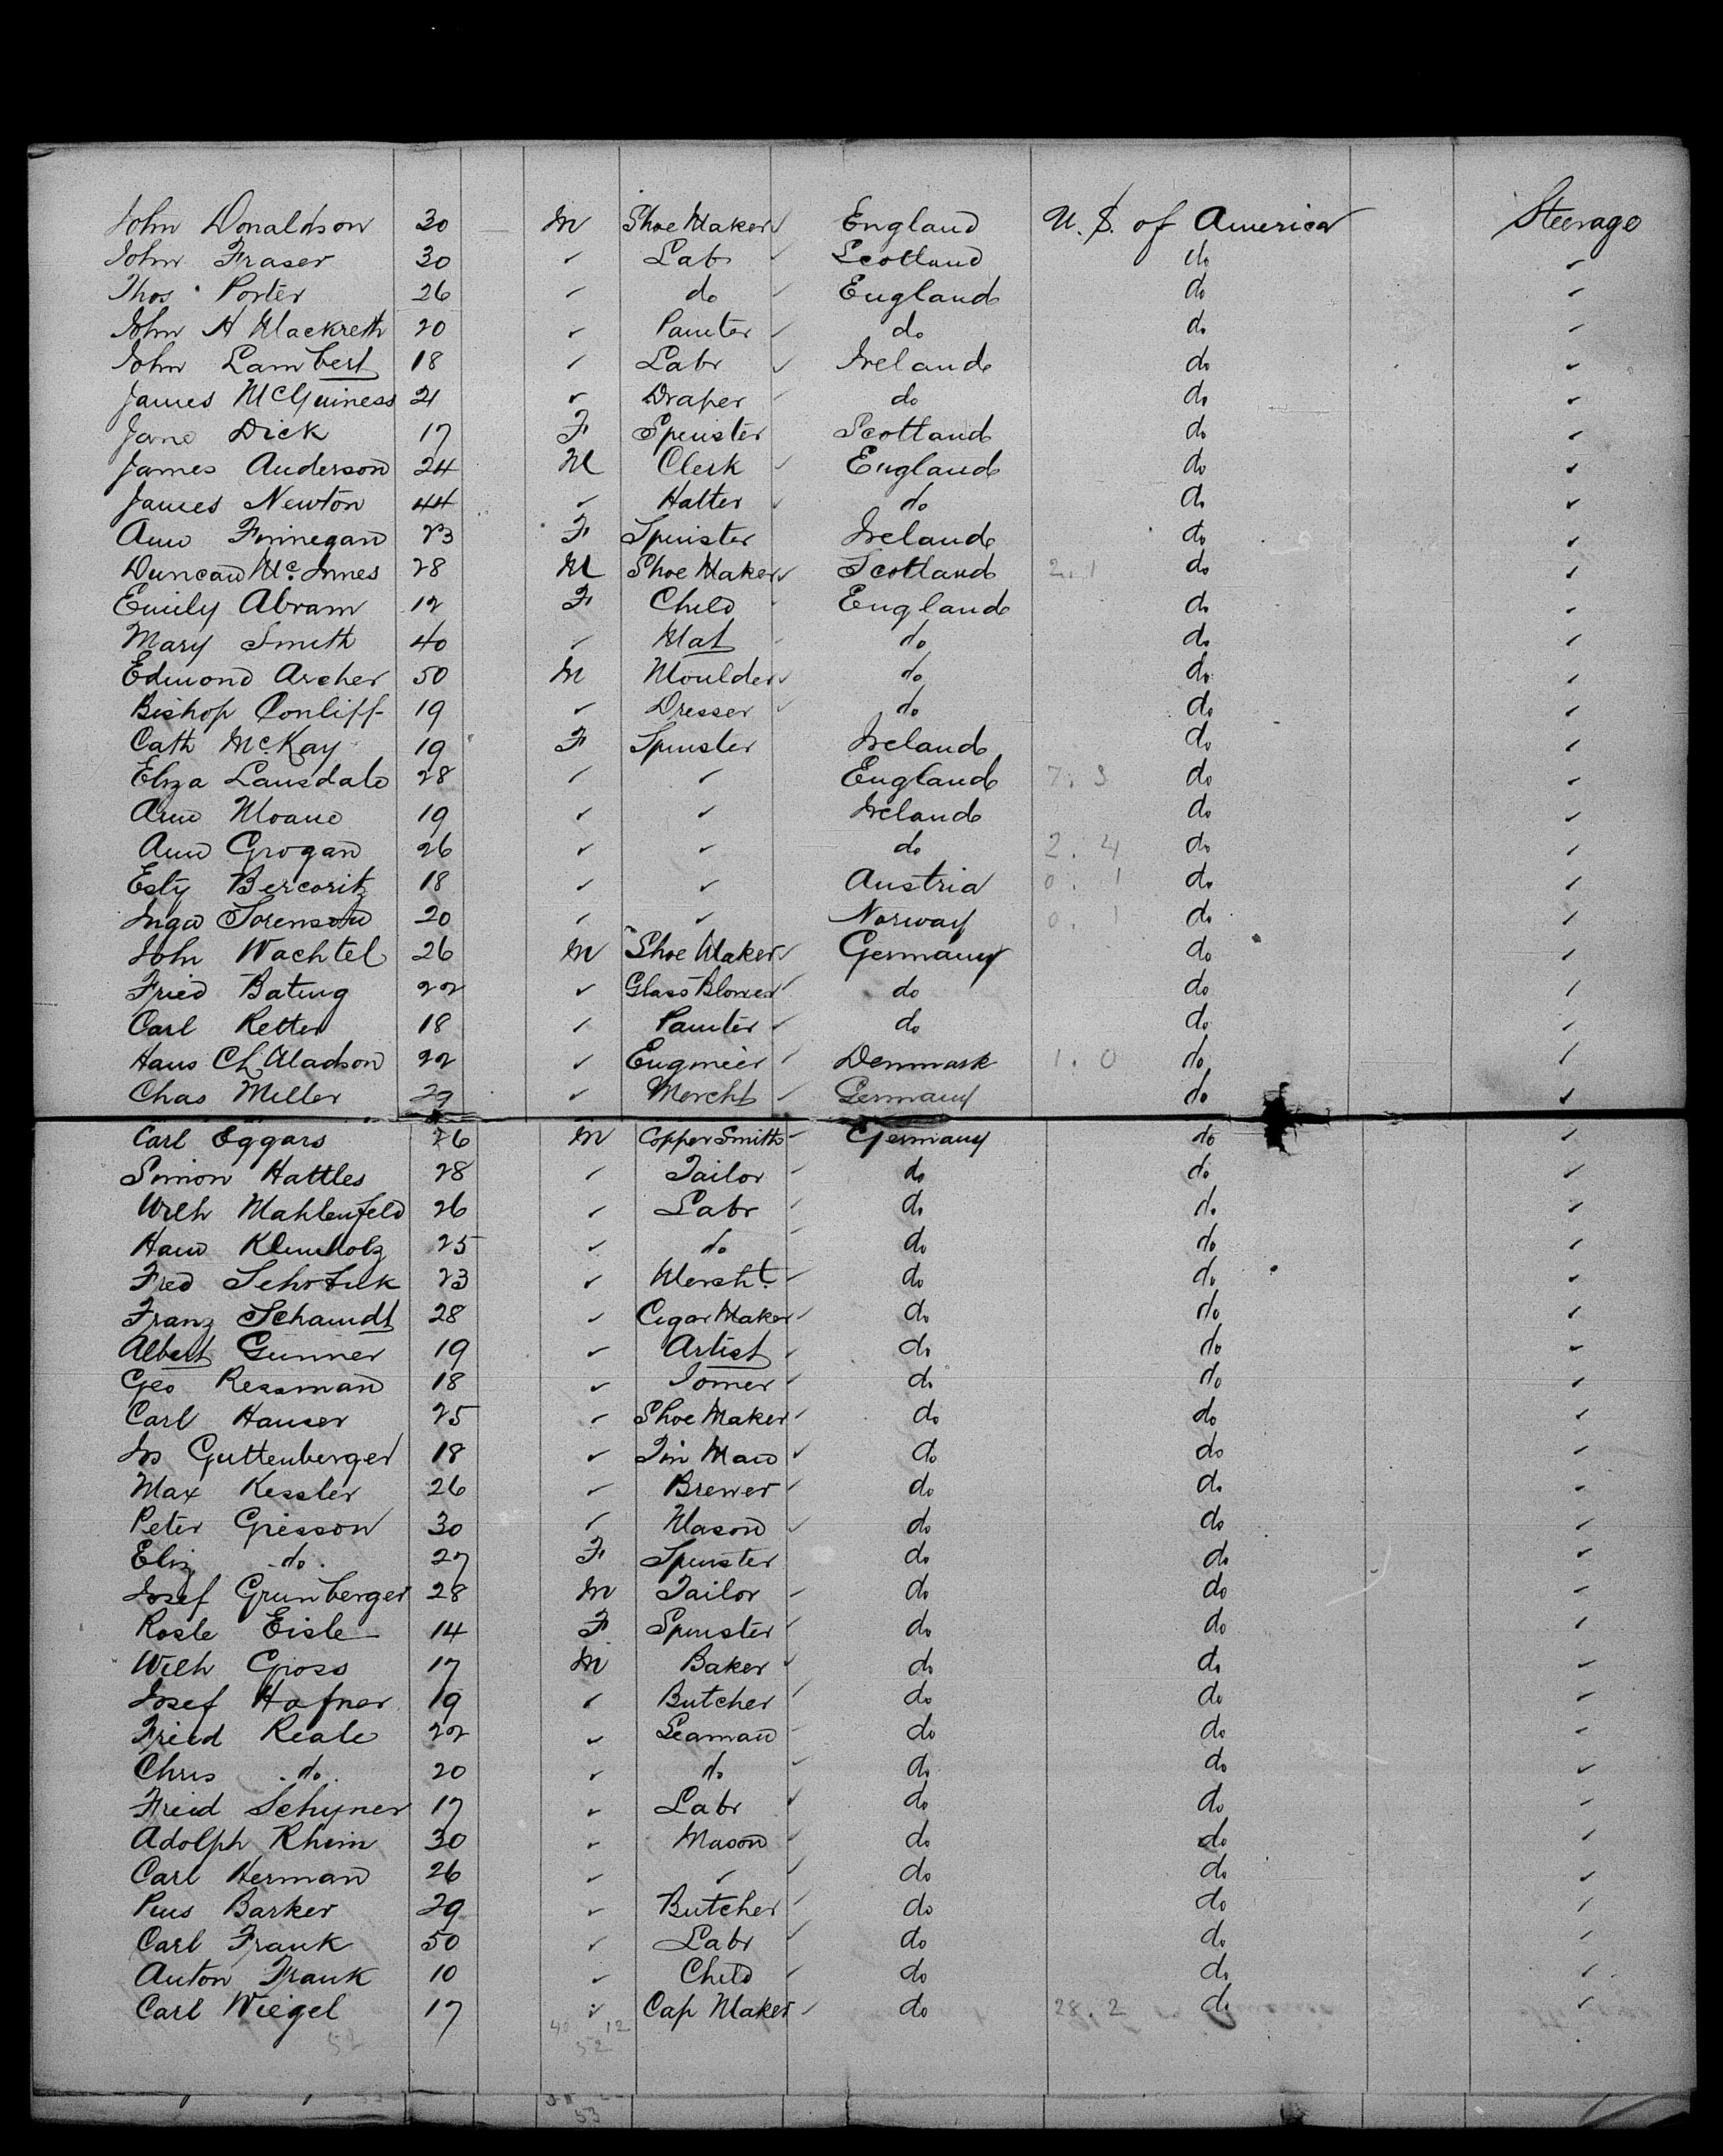 John Donaldson 30 M Shoe Maker ✓ England U. S. of America Steerage
John Fraser 30 ✓ Lab ✓ Scotland do ✓
Thos Porter 26 ✓ do ✓ England do ✓
John H Mackreth 20 ✓ Painter ✓ do do ✓
John Lambert 18 ✓ Labr ✓ Ireland do ✓
James McGuiness 21 ✓ Draper ✓ do do ✓
Jane Dick 17 F Spinster Scotland do ✓
James Anderson 24 M Clerk ✓ England do ✓
James Newton 44 ✓ Hatter ✓ do do ✓
Ann Finnegan 23 F Spinster Ireland do ✓
Duncan McInnes 28 M Shoe Maker ✓ Scotland 2.1 do ✓
Emily Abram 12 F Child England do ✓
Mary Smith 40 ✓ Mat do do ✓
Edmond Archer 50 M Moulder ✓ do do ✓
Bishop Conliff 19 ✓ Dresser ✓ do do ✓
Cath McKay 19 F Spinster Ireland do ✓
Eliza Lansdale 28 ✓ ✓ England 7.3 do ✓
Ann Moane 19 ✓ ✓ Ireland do ✓
Ann Grogan 26 ✓ ✓ do 2.4 do ✓
Esty Bercoritz 18 ✓ ✓ Austria 0.1 do ✓
Inga Sorenson 20 ✓ ✓ Norway 0.1 do ✓
John Wachtel 26 M Shoe Maker ✓ Germany do ✓
Fried Bating 22 ✓ Glass Blower ✓ do do ✓
Carl Retter 18 ✓ Painter ✓ do do ✓
Hans Ch Madson 22 ✓ Engineer ✓ Denmark 1.0 do ✓
Chas Miller 29 ✓ Mercht ✓ Germany do ✓
Carl Eggars 26 M Copper Smith ✓ Germany do ✓
Simon Hattles 28 ✓ Tailor ✓ do do ✓
Wilh Mahlenfeld 26 ✓ Labr ✓ do do ✓
Klumholz 25 ✓ do ✓ do do ✓
Fred 23 ✓ Mercht ✓ do do ✓
Franz Schamdt 28 ✓ Cigar Maker ✓ do do ✓
Albert Gunner 19 ✓ Artist ✓ do do ✓
Geo Ressman 18 ✓ Joiner ✓ do do ✓
Carl Hauser 25 ✓ Shoe Maker ✓ do do ✓
Jos Guttenberger 18 ✓ Tin Man ✓ do do ✓
Max Kessler 26 ✓ Brewer ✓ do do ✓
Peter Griesson 30 ✓ Mason ✓ do do ✓
Eliz do 27 F Spinster do do ✓
Josef Grunberger 28 M Tailor ✓ do do ✓
Rosle Eisle 14 F Spinster ✓ do do ✓
Wilh Gross 17 M Baker ✓ do do ✓
Josef Hafner 19 ✓ Butcher ✓ do do ✓
Fried Reale 22 ✓ Seaman ✓ do do ✓
Chris do 20 ✓ do ✓ do do ✓
Fried Schyner 17 ✓ Labr ✓ do do ✓
Adolph Rhein 30 ✓ Mason ✓ do do ✓
Carl Herman 26 ✓ ✓ ✓ do do ✓
Pius Barker 29 ✓ Butcher ✓ do do ✓
Carl Frank 50 ✓ Labr ✓ do do ✓
Anton Frank 10 ✓ Child ✓ do do ✓
Carl Wiegel 17 ✓ Cap Maker ✓ do 28.2 do ✓
52 40 12
52
53